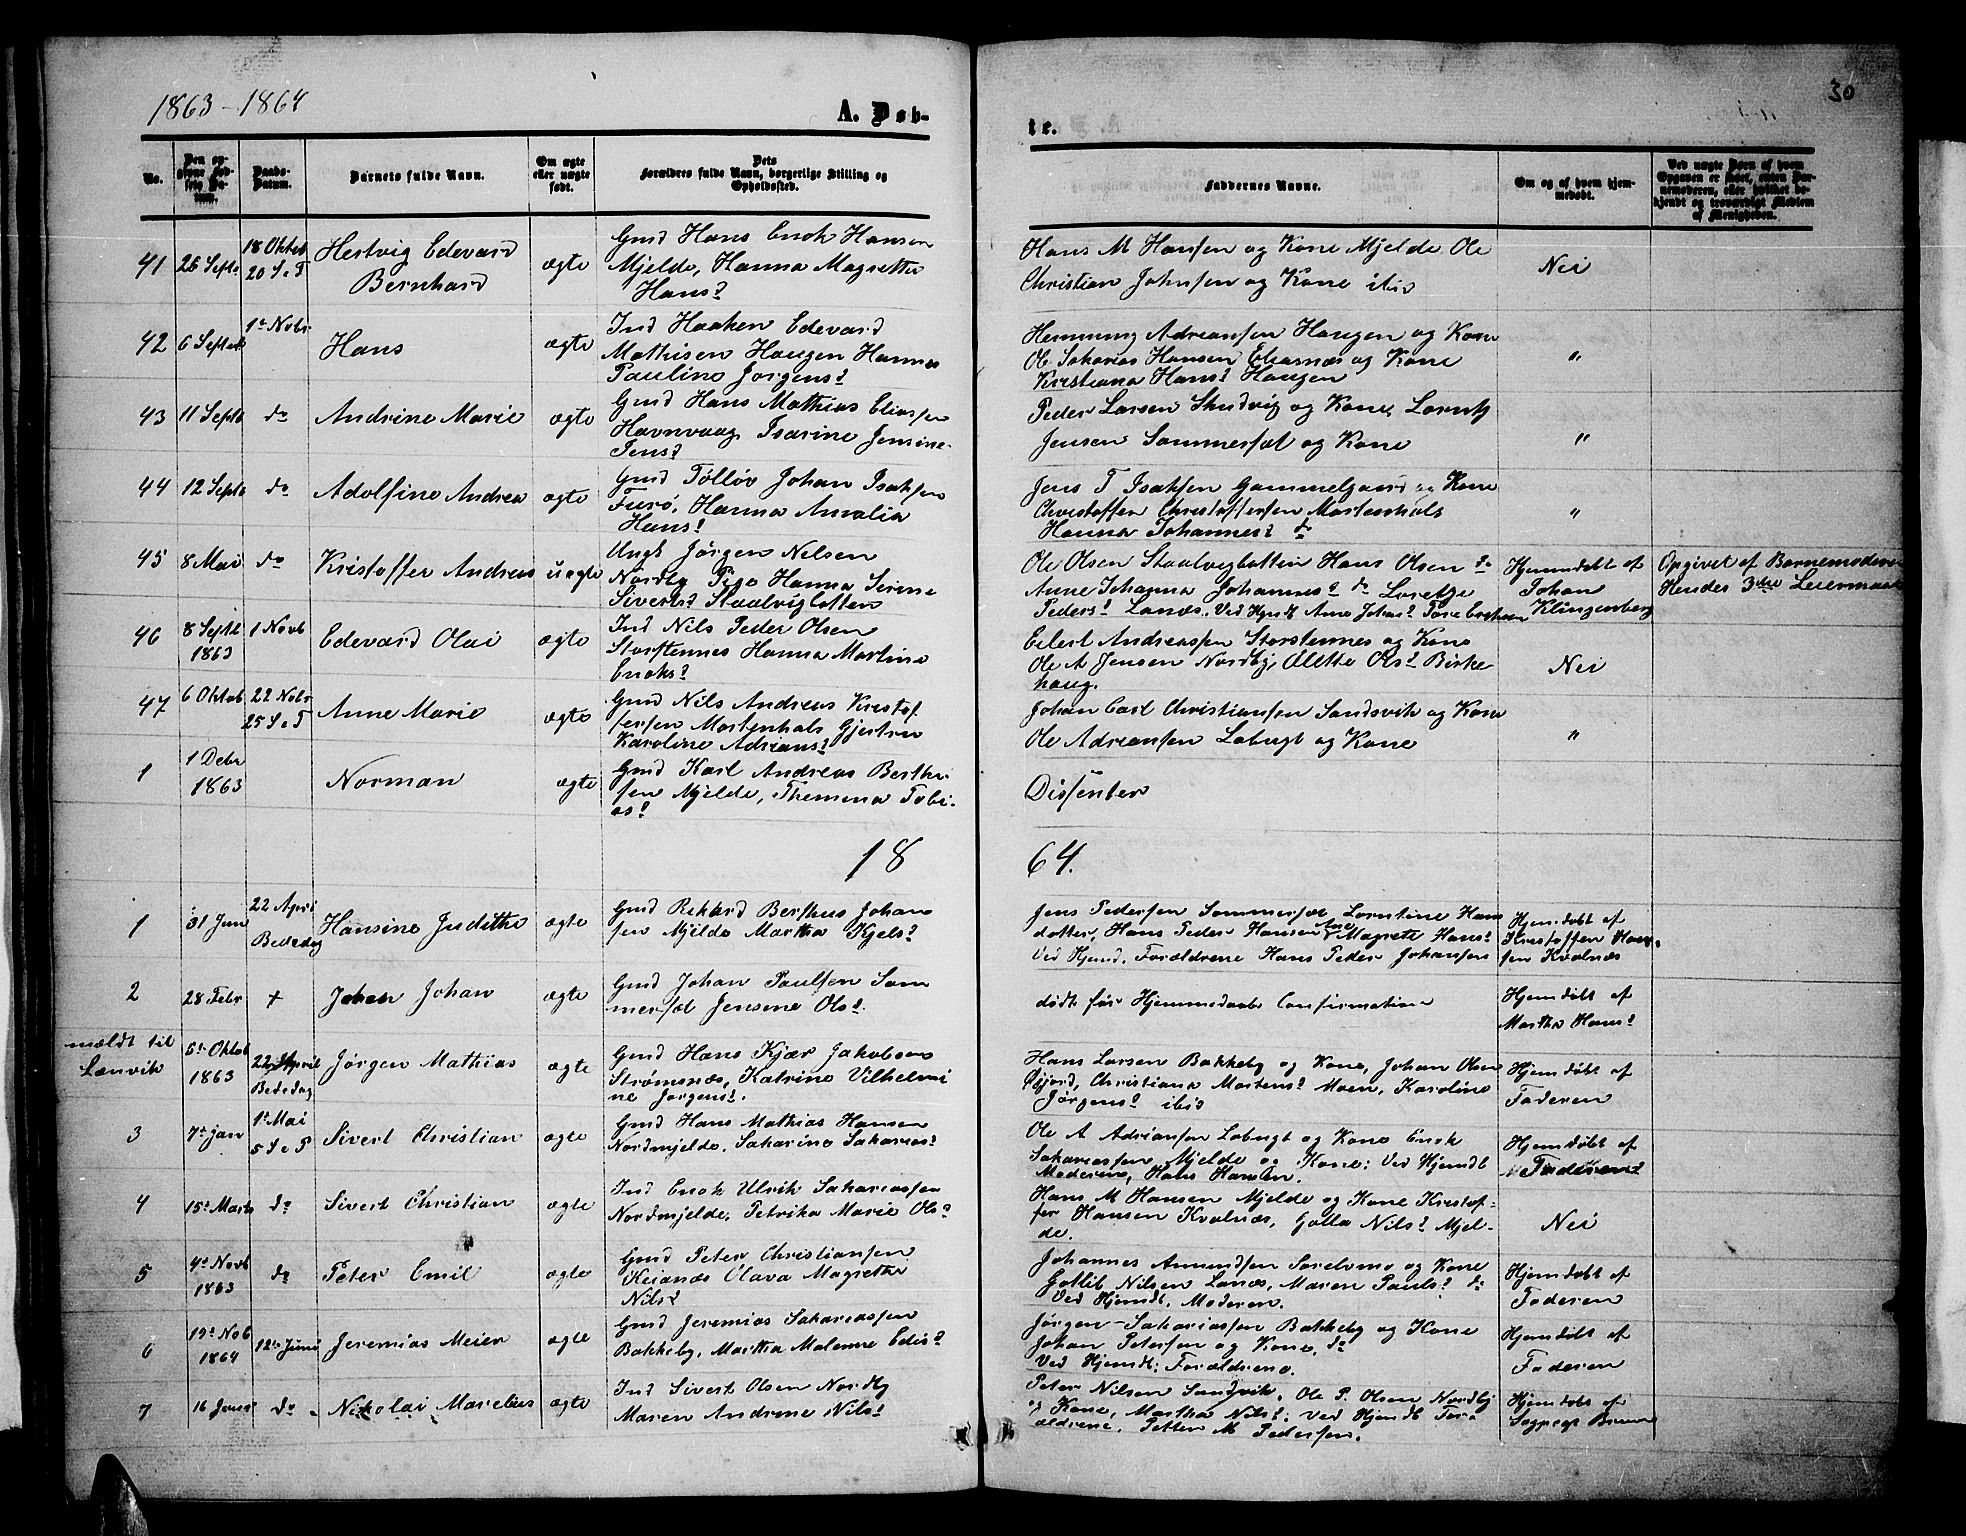 1863-1864
A. Døb-
te.
30
No.
Den opgivne Fødsels Datum.
Daabs-Datum.
Barnets fulde Navn.
Om ægte eller uægte født.
Dets Forældres fulde Navn, borgerlige Stilling og Opholdssted.
Faddernes Navne.
Om og af hvem hjemmedøbt.
Ved uægte Børn af hvem Opgaven er skeet, enten Barnemoderen, eller hvilket bekjendt og troværdigt Medlem af Menigheden.
41 26 Septe 18 Oktob 20 S e T Hertvig Edevard Bernhard ægte
Gmd Hans Enok Hansen
Mjelde, Hanna Magrethe
Hansd
Hans M Hansen og Kone Mjelde Ole
Christian Johnsen og Kone ibid
Nei
42 6 Septeb 1te Nobr Hans ægte
Ind Haaken Edevard
Mathisen Haugen Hanna
Pauline Jørgensd
Hemming Adriansen Haugen og Kone
Ole Sakarias Hansen Eliasnæs og Kone
Kristiana Hansd Haugen
"
43 11 Septb do Andrine Marie ægte
Gmd Hans Mathias Eliassen
Havnvaag, Isarine Jensine
Jensd
Peder Larsen Skudvig og Kone, Lorntz
Jensen Sommersæt og Kone
"
44 12 Septb do Adolfine Andrea ægte
Gmd Tølløv Johan Isaksen
Furø, Hanna Amalia
Hansd
Jens T Isaksen Gammelgaard og Kone
Christoffer Christoffersen Mortenhals
Hanna Johannesd do
"
45 8 Mai do Kristoffer Andreas uægte
Ungk Jørgen Nilsen
Nordby Pige Hanna Serine
Sivertsd Staalvigbotten
Ole Olsen Staalvigbotten Hans Olsen do
Anne Johanna Johannesd do Loretze
Pedersd Lanæs. Ved Hjmdb Anne Johand
Hjemdøbt af
Johan
Klingenberg
Opgivet af Barnemoderen
Hendes 3die Leiermaal
46 8 Septb 1863 1 Novb Edevard Olai ægte
Ind Nils Peder Olsen
Storstennes Hanna Martine
Enoksd
Eilert Andreassen Storstennes og Kone
Ole A Jensen Nordby, Olette Olsd Birke
haug.
Nei
47 6 Oktob 22 Nobr 25 S e T Anne Marie ægte
Gmd Nils Andreas Kristof
fersen Mortenhals Gjertru
Karoline Adriansd
Johan Carl Christiansen Sandsvik og Kone
Ole Adriansen Løbugt og Kone
"
1 1 Debr 1863 Norman ægte
Gmd Karl Andreas Berthe
sen Mjelde, Themena Tobi-
asd
Dissenter
18
64.
1 31 Jan 22 Apri Bededag Hansine Judithe ægte
Gmd Rikard Berthus Johan
sen Mjelde Martha Kjelsd
Jens Pedersen Sommersæt Lorntine Hans
dotter, Hans Peder Hansen Ane Magrete Hansd
Ved Hjmd. Forældrene Hans Peder Johansen
Hjemdøbt af
Kristoffer Han-
sen Kvalnæs
2 28 Febr + Johan ægte
Gmd Johan Paulsen Som
mersæt Jensine Olsd
død før Hjemmedaabs Confirmation
Hjemdøbt af
Martha Hansd
mældt til
Lænvik
5te Oktob 1863 22 April Bededag Jørgen Mathias ægte
Gmd Hans Kjær Jakobsen
Strømsnæs, Katrine Vilhelmi
ne Jørgensd.
Hans Larsen Bakkeby og Kone, Johan Olsen
Øsjord, Christiana Mortensd Moen, Karoline
Jørgensd ibid
Hjemdøbt af
Faderen
3 7de Jan 1te Mai 5 S e P Sivert Christian ægte
Gmd Hans Mathias Hansen
Nordmjelde, Sakarine Sakariasd
Ole A Adriansen Løbugt og Kone Enok
Sakariassen Mjelde og Kone; Ved Hjemdb
Moderen, Hans Hansen.
Hjemdøbt af
Faderen
4 15de Marts do Sivert Christian ægte
Ind Enok Ulrik Sakariassen
Nordmjelde, Petrika Marie Olsd
Hans M Hansen Mjelde og Kone Kristof-
fer Hansen Kvalnæs, Golla Nilsd Mjel-
de.
Nei
5 4de Novb 1863 do Peter Emil ægte
Gmd Peter Christiansen
Keianæs Olava Magrethe
Nilsd
Johannes Amundsen Sørelvmo og Kone
Gotlib Nilsen Lanæs, Maren Paulsd do
Ved Hjemdt, Moderen.
Hjemdøbt af
Faderen
6 19de Nob 1864 12te Juni Jeremias Meier ægte
Gmd Jeremias Sakariassen
Bakkeby, Martha Malenne Edisd
Jørgen Sakariassen Bakkeby og Kone
Johan Petersen og Kone, do
Ved Hjemdt; Forældrene.
Hjemdøbt af
Faderen
7 16 Janr do Nikolai Marelius ægte
Ind Sivert Olsen Nordby
Maren Andrine Nilsd
Peter Nilsen Sandvik, Ole P. Olsen Nordby
og Kone, Martha Nilsd; Ved Hjemdb For
ældrene, Petter M Pedersen.
Hjemdøbt af